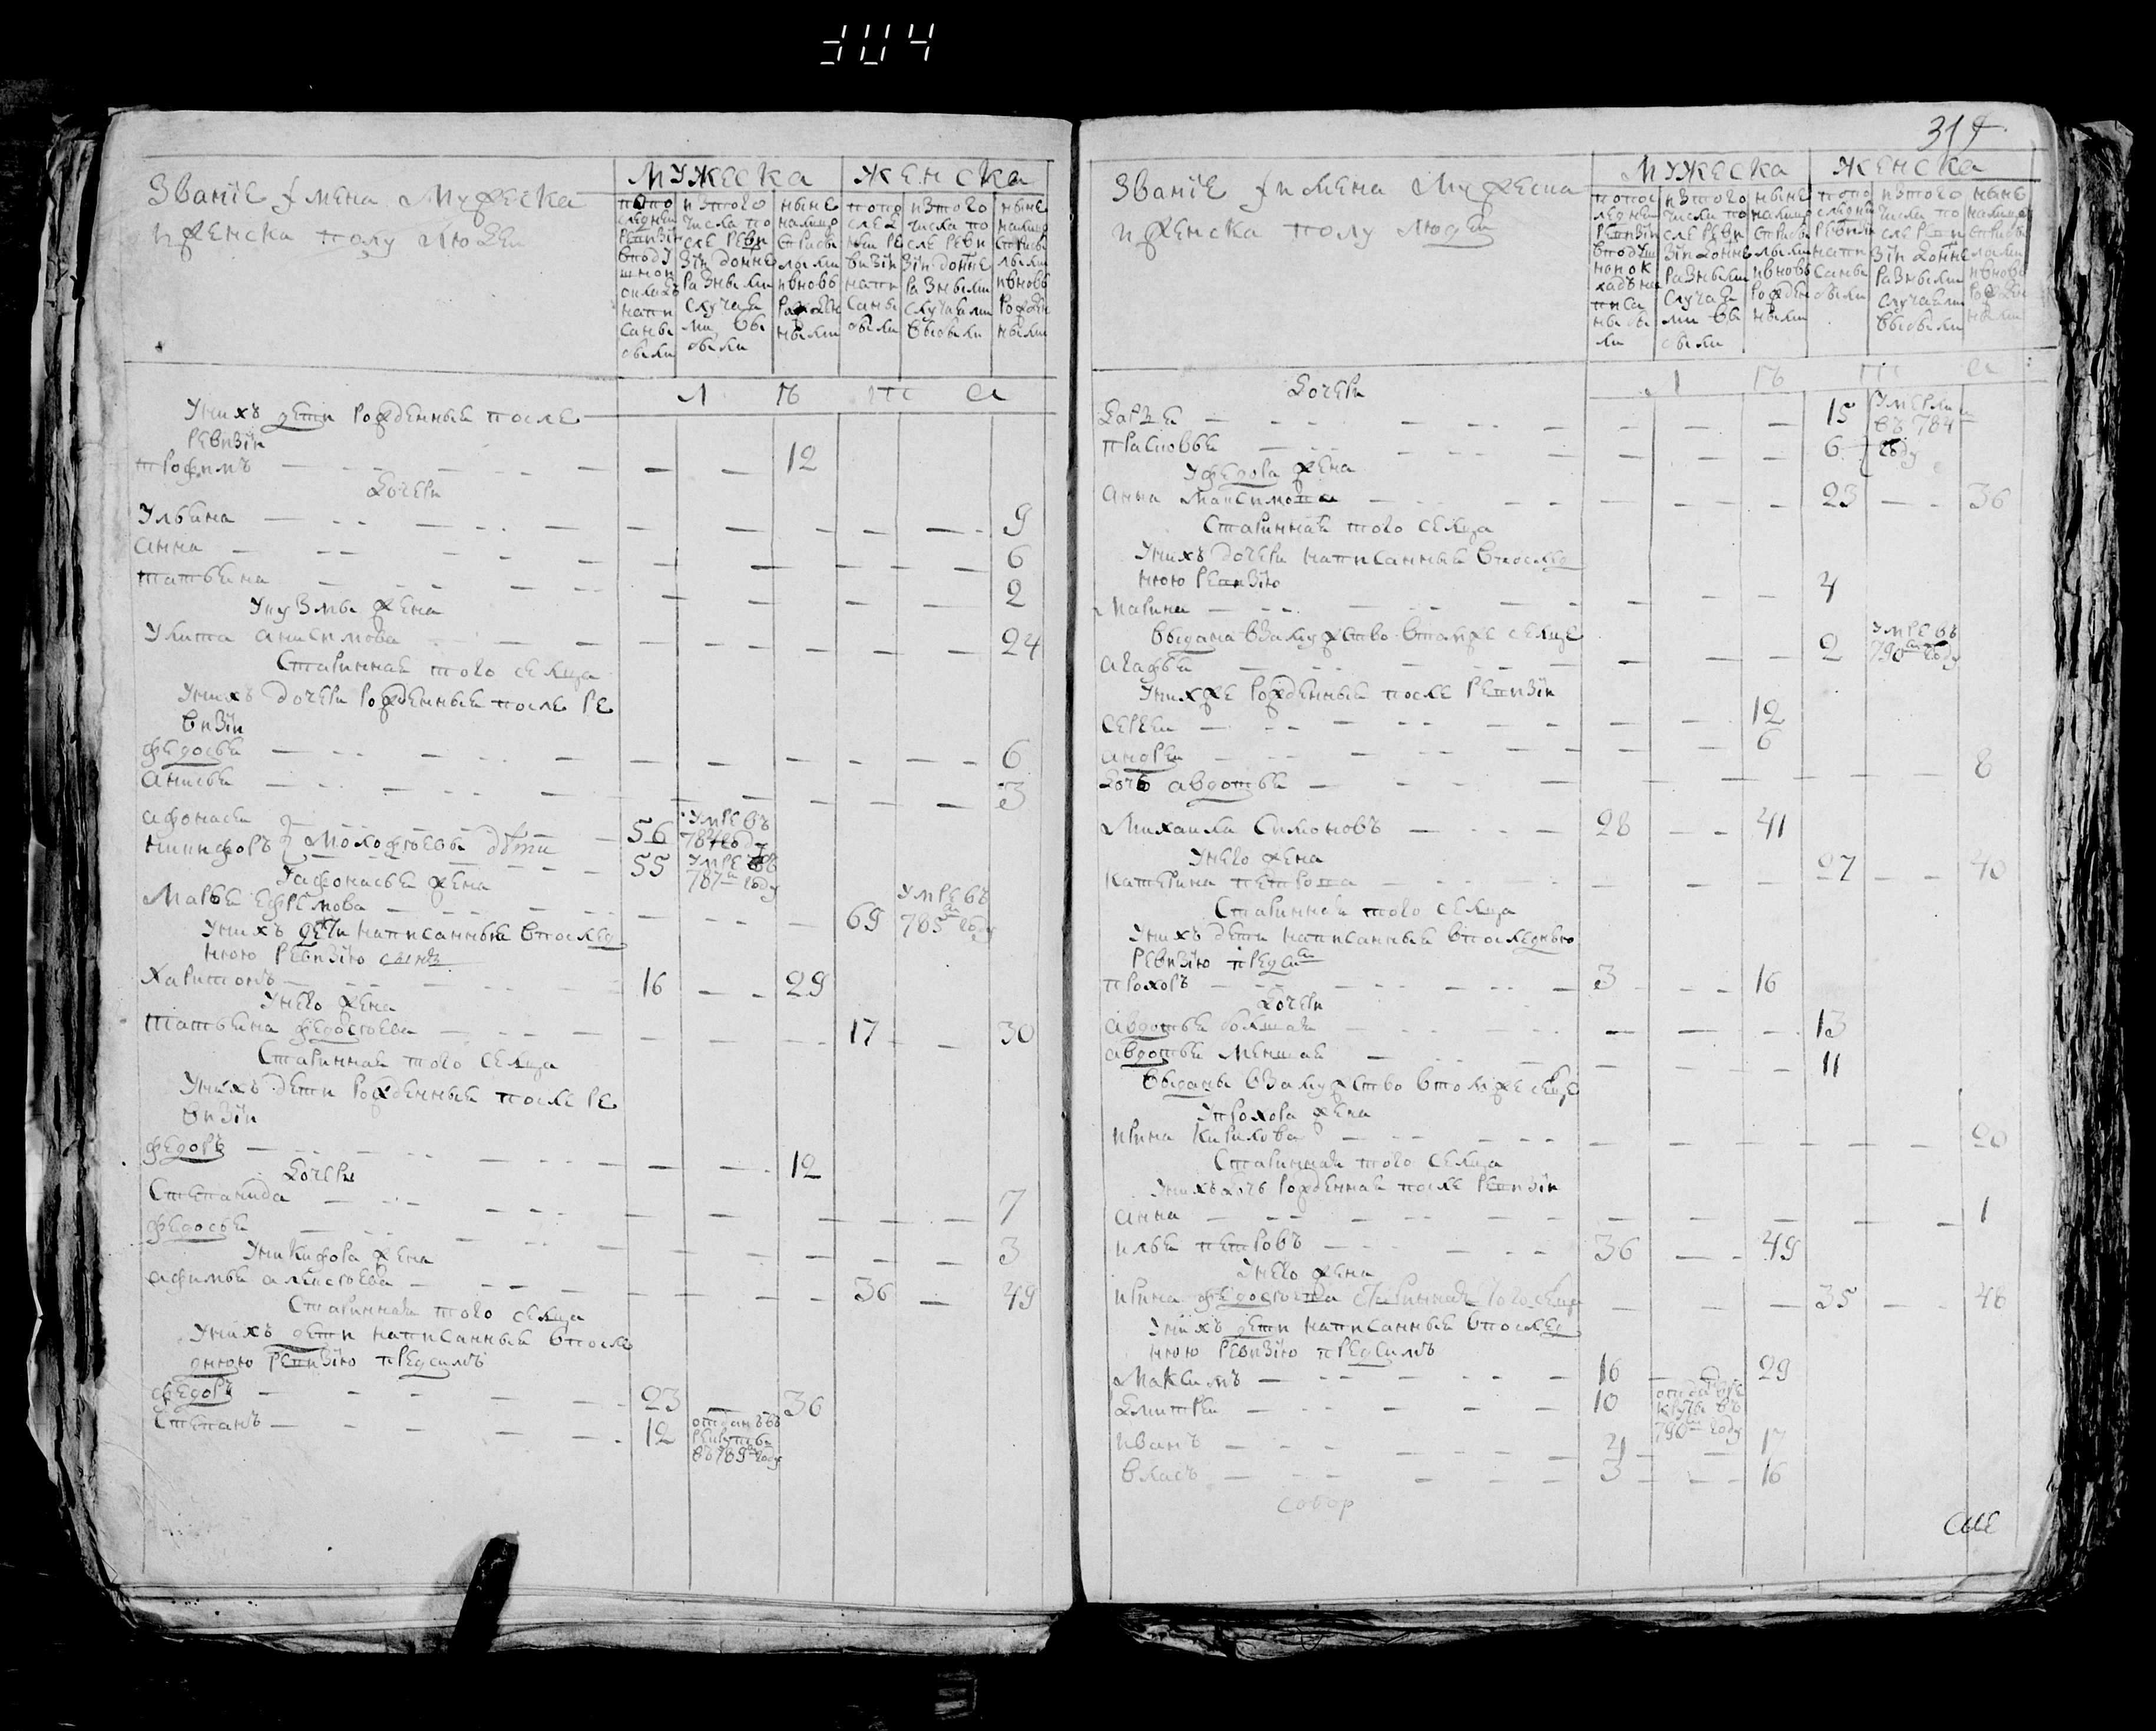 304
Званіе имена мужеска
и женска полу людей
МУЖЕСКА ЖЕНСКА
попо следней ревизіи вподушной окладъ написаны были
изтого числа после ревизіи доныне разными случаями выбыли
ныне налицо старыми ивновь рожденными
попоследней ревизіи написаны были
изтого числа после ревизіи доныне разными случаями выбыли
ныне налицо старыми ивновь рожденными
У нихъ дети рожденныя после
ревизіи
трофимъ 12
дочери
Ульяна 9
анна 6
татьяна 2
У кузмы жена
Улита анисимова 24
Старинная того селца
У нихъ дочери рожденныя после ре
визіи
федосья 6
анисья 3
афонасей 56 умре въ 784 году
никифоръ 55 умре въ 787м году
Молофеевы дети
У афонасья жена
Марья ефремова 69 умре въ 785м году
У нихъ дети написанныя впослед
нюю ревизію сынъ
Харитонъ 16 29
У него жена
Татьяна федосеева 17 30
Старинная того селца
У нихъ дети рожденныя после ре
визіи
федоръ 12
дочери
Степанида 7
федосья 3
У никифора жена
афимья алексеева 36 49
Старинная того селца
У нихъ дети написанныя впосле
днюю ревизію предсимъ
федоръ 23 36
Степанъ 12 отданъ въ рекруты въ 789м году
314
Званіе и имена мужеска
и женска полу людей
МУЖЕСКА ЖЕНСКА
попоследней ревизіи вподушной окладъ написаны были
изтого числа после ревизіи доныне разными случаями выбыли
ныне налицо старыми ивновь рожденными
попоследней ревизіи написаны были
изтого числа после ревизіи доныне разными случаями выбыли
ныне налицо старыми ивновь рожденными
дочери
Дарья 15 умерли въ 784
прасковья 6 году
У федора жена
анна максимова 23 36
Старинная того селца
У нихъ дочери написанныя впослед
нюю ревизію
Марина 4
выдана взамужство втомже селце
агафья 2 умре въ 790м году
У нихже рожденныя после ревизіи
сергей 12
андрей 6
дочь авдотья 8
Михаила Симоновъ 28 41
У него жена
катерина петрова 27 40
Старинная того селца
У нихъ дети написанныя впоследнюю
ревизію предсим
прохоръ 3 16
дочери
авдотья болшая 13
авдотья меншая 11
выданы взамужство втомже селце
У прохора жена
ирина кирилова 20
Старинная того селца
У нихъ дочь рожденная после ревизіи
анна 1
илья петровъ 36 49
У него жена
ирина федосеева старинная того селца 35 48
У нихъ дети написанныя впослед
нюю ревизію предсимъ
Максимъ 16 29
дмитрей 10 отданъ въ рекруты въ 790м году
иванъ 4 17
власъ 3 16